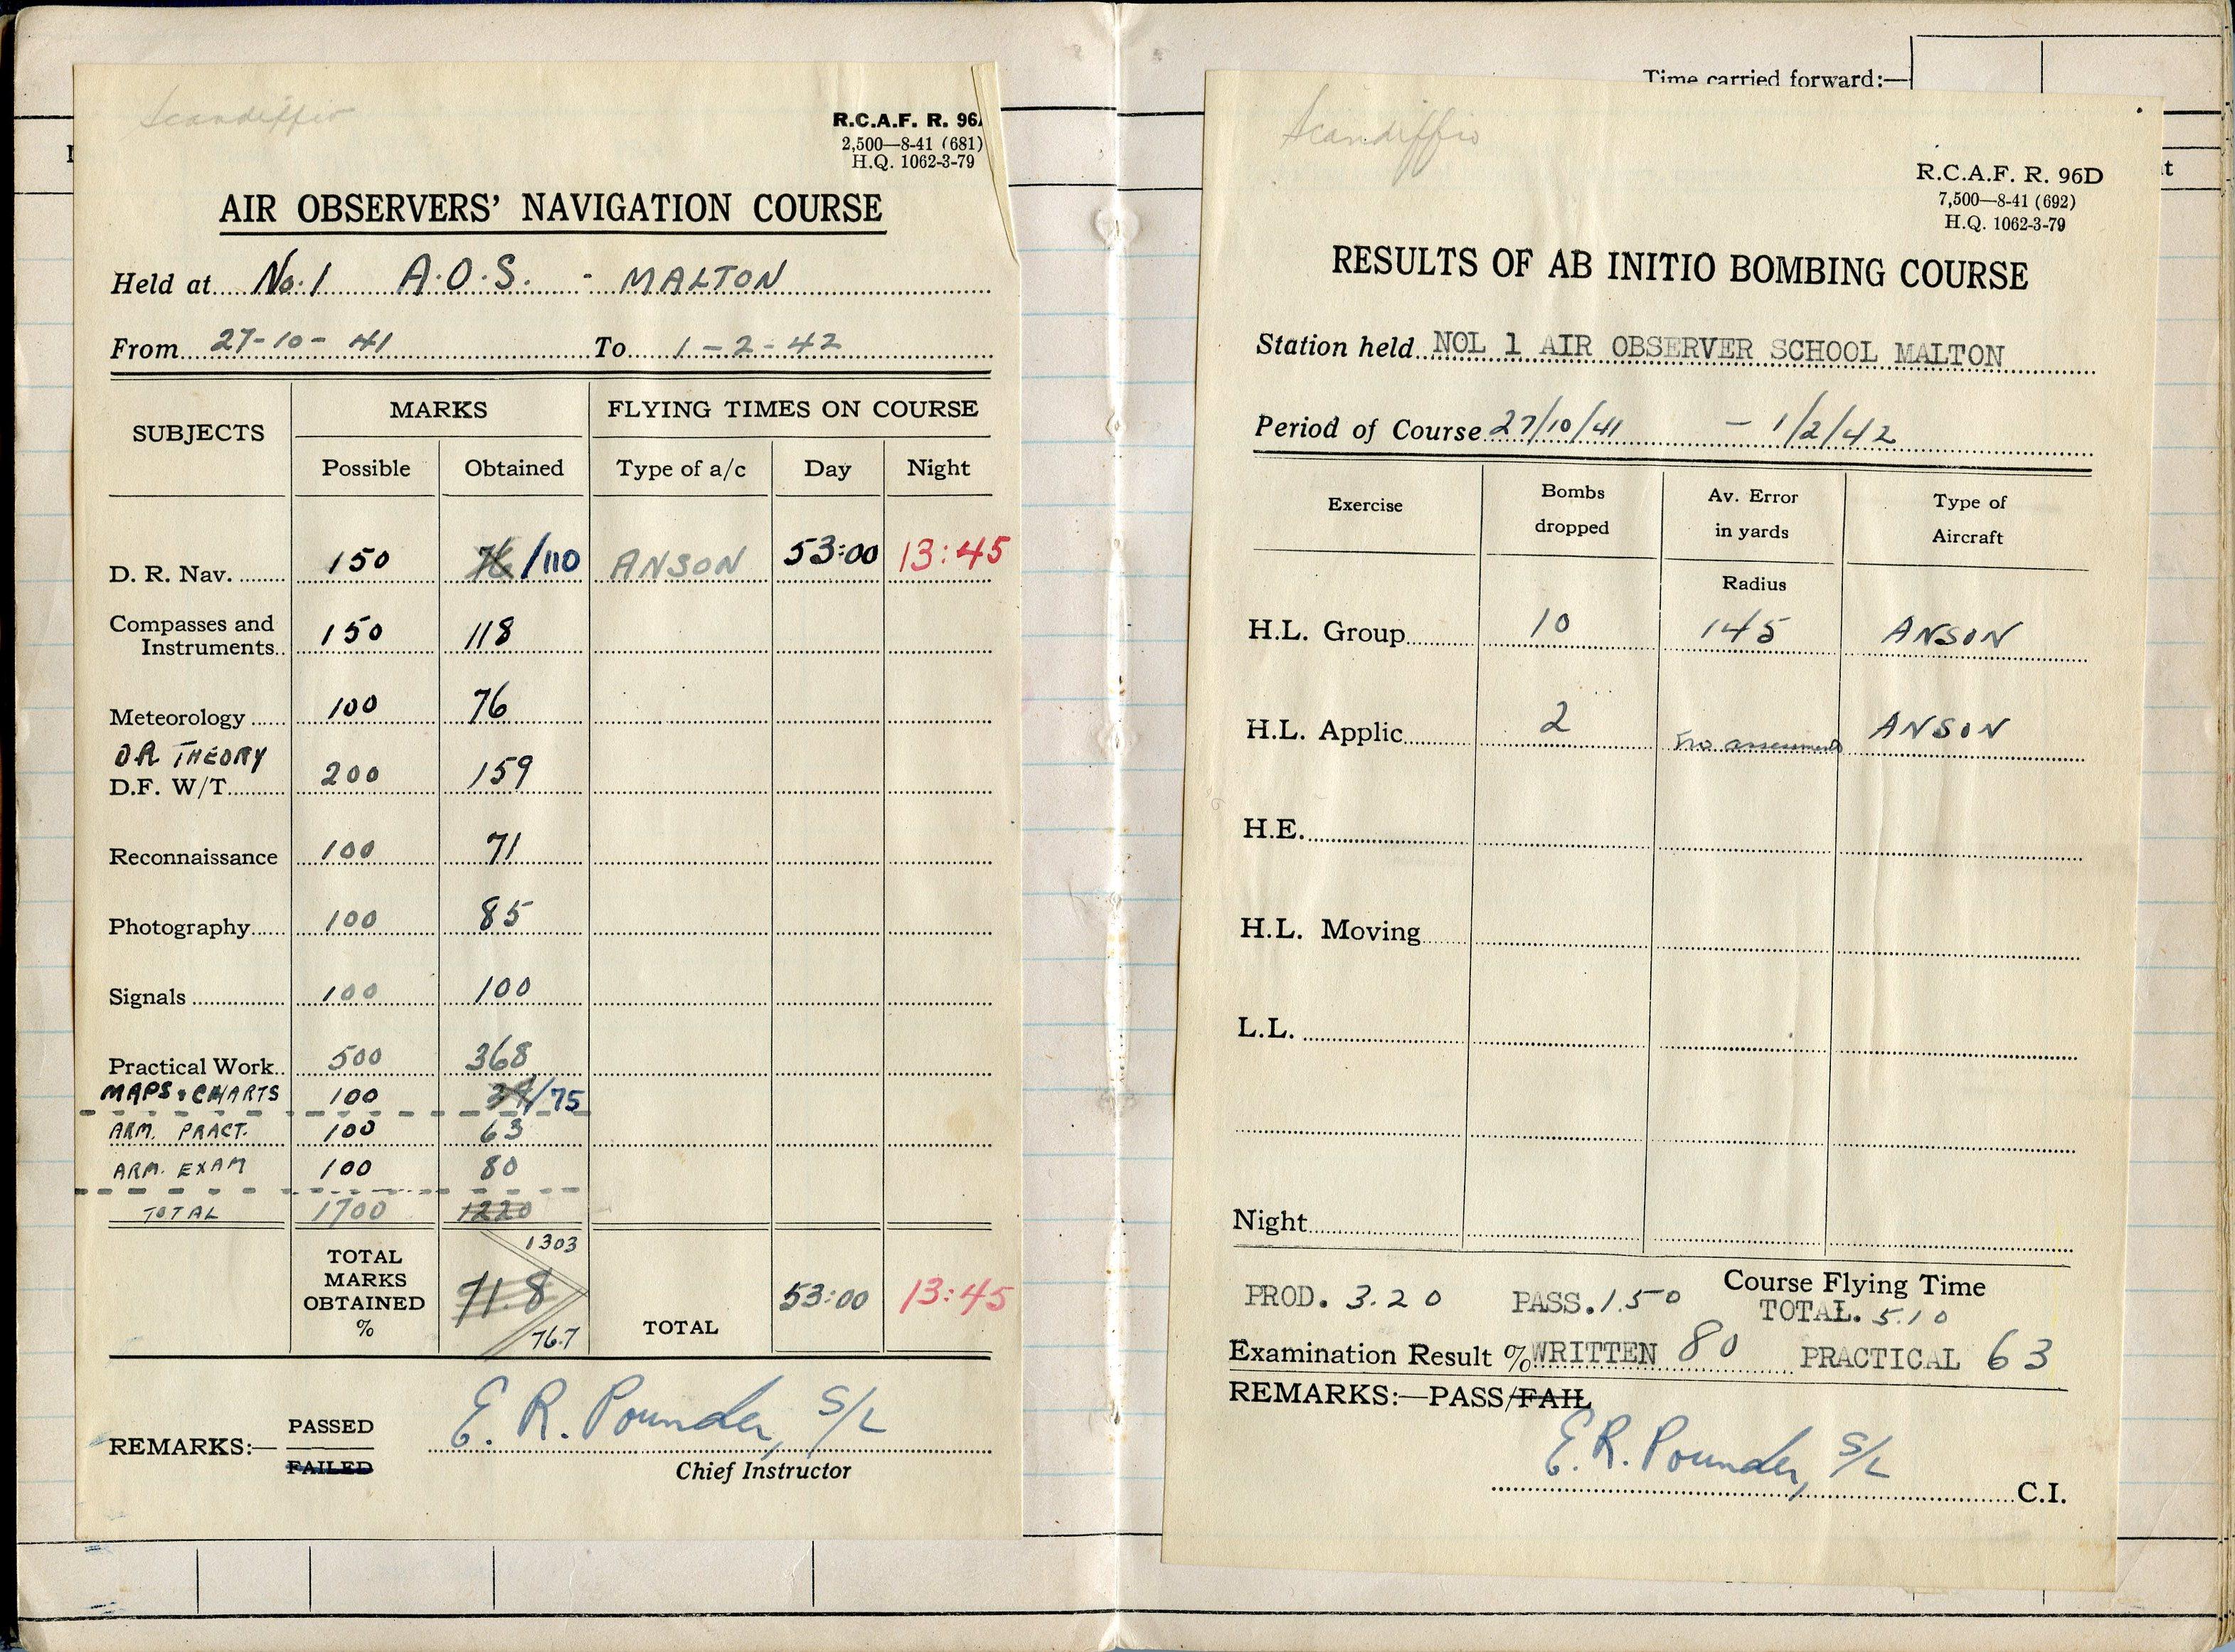 Time carried forward:—
Scandiffio
R.C.A.F. R. 96
2,500—8-41 (681)
H.Q. 1062-3-79
AIR OBSERVERS' NAVIGATION COURSE
Held at No. 1 A.O.S. - MALTON
From 27-10-41 To 1-2-42
SUBJECTS MARKS FLYING TIMES ON COURSE
Possible Obtained Type of a/c Day Night
D. R. Nav. 150 76 /110 ANSON 53:00 13:45
Compasses and
Instruments 150 118
Meteorology 100 76
DR THEORY
D.F. W/T 200 159
Reconnaissance 100 71
Photography 100 85
Signals 100 100
Practical Work 500 368
MAPS & CHARTS 100 /75
ARM. PRACT. 100 63
ARM. EXAM 100 80
TOTAL 1700 1220
1303
TOTAL
MARKS
OBTAINED
%
71.8
76.7
TOTAL 53:00 13:45
REMARKS:— PASSED
FAILED
E. R. Pounder, S/L
Chief Instructor
Scandiffio
R.C.A.F. R. 96D
7,500—8-41 (692)
H.Q. 1062-3-79
RESULTS OF AB INITIO BOMBING COURSE
Station held NOL 1 AIR OBSERVER SCHOOL MALTON
Period of Course 27/10/41 - 1/2/42
Exercise Bombs dropped Av. Error in yards Type of Aircraft
Radius
H.L. Group 10 145 ANSON
H.L. Applic 2 assessment ANSON
H.E.
H.L. Moving
L.L.
Night
Course Flying Time
PROD. 3.20 PASS. 1.50 TOTAL. 5.10
Examination Result % WRITTEN 80 PRACTICAL 63
REMARKS:—PASS/FAIL
E. R. Pounder, S/L
C.I.